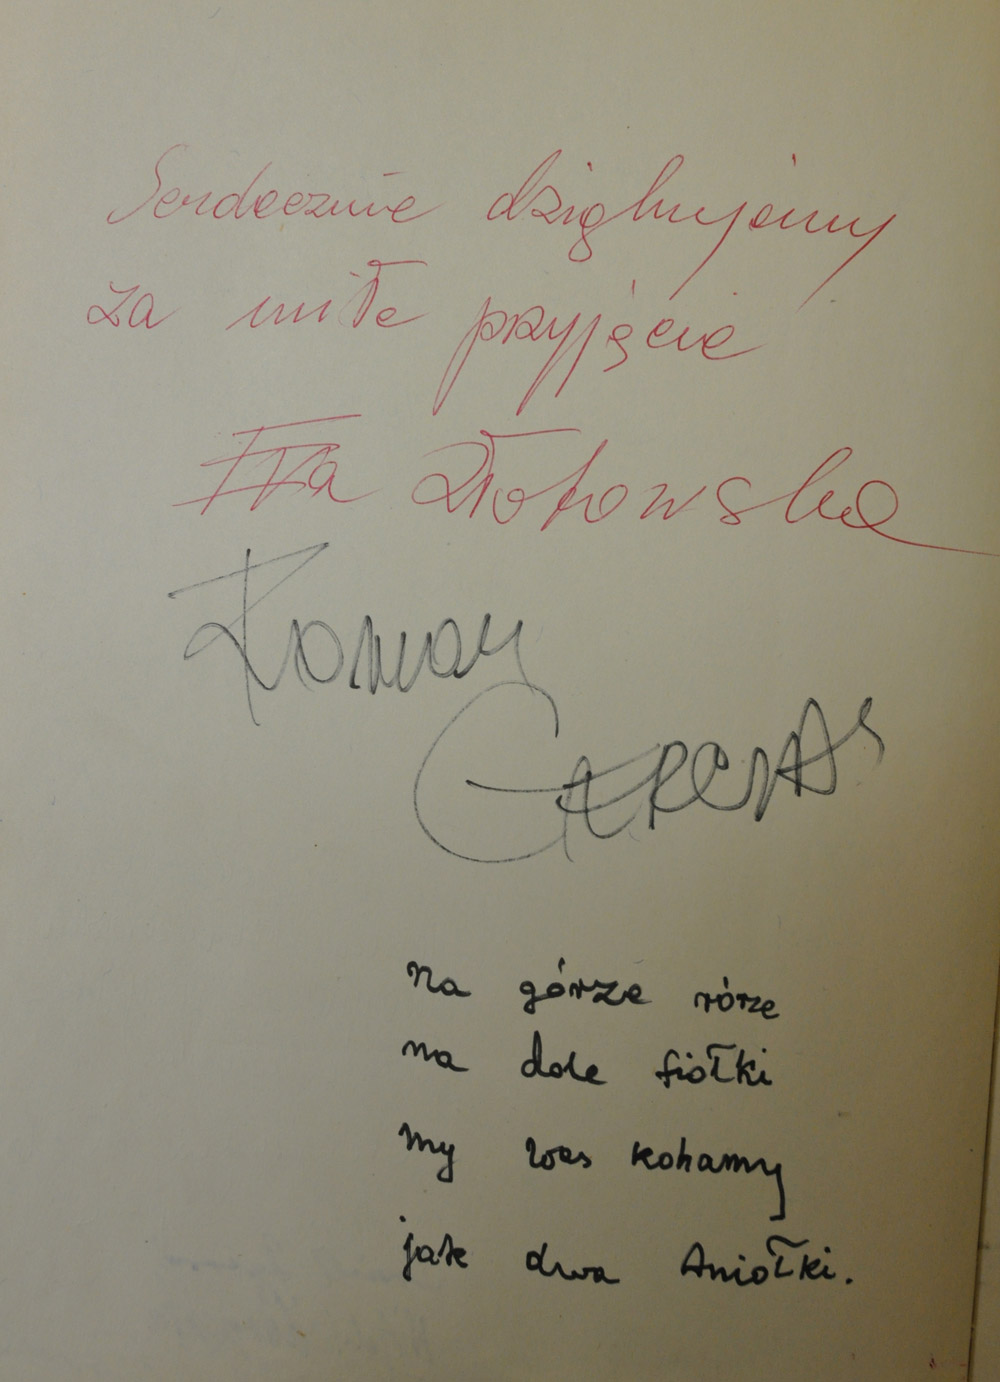 Serdecznie dziękujemy
za miłe przyjęcie
Iza Złotowska
Roman
na górze róże
na dole fiołki
my was kohamy
jak dwa Aniołki.